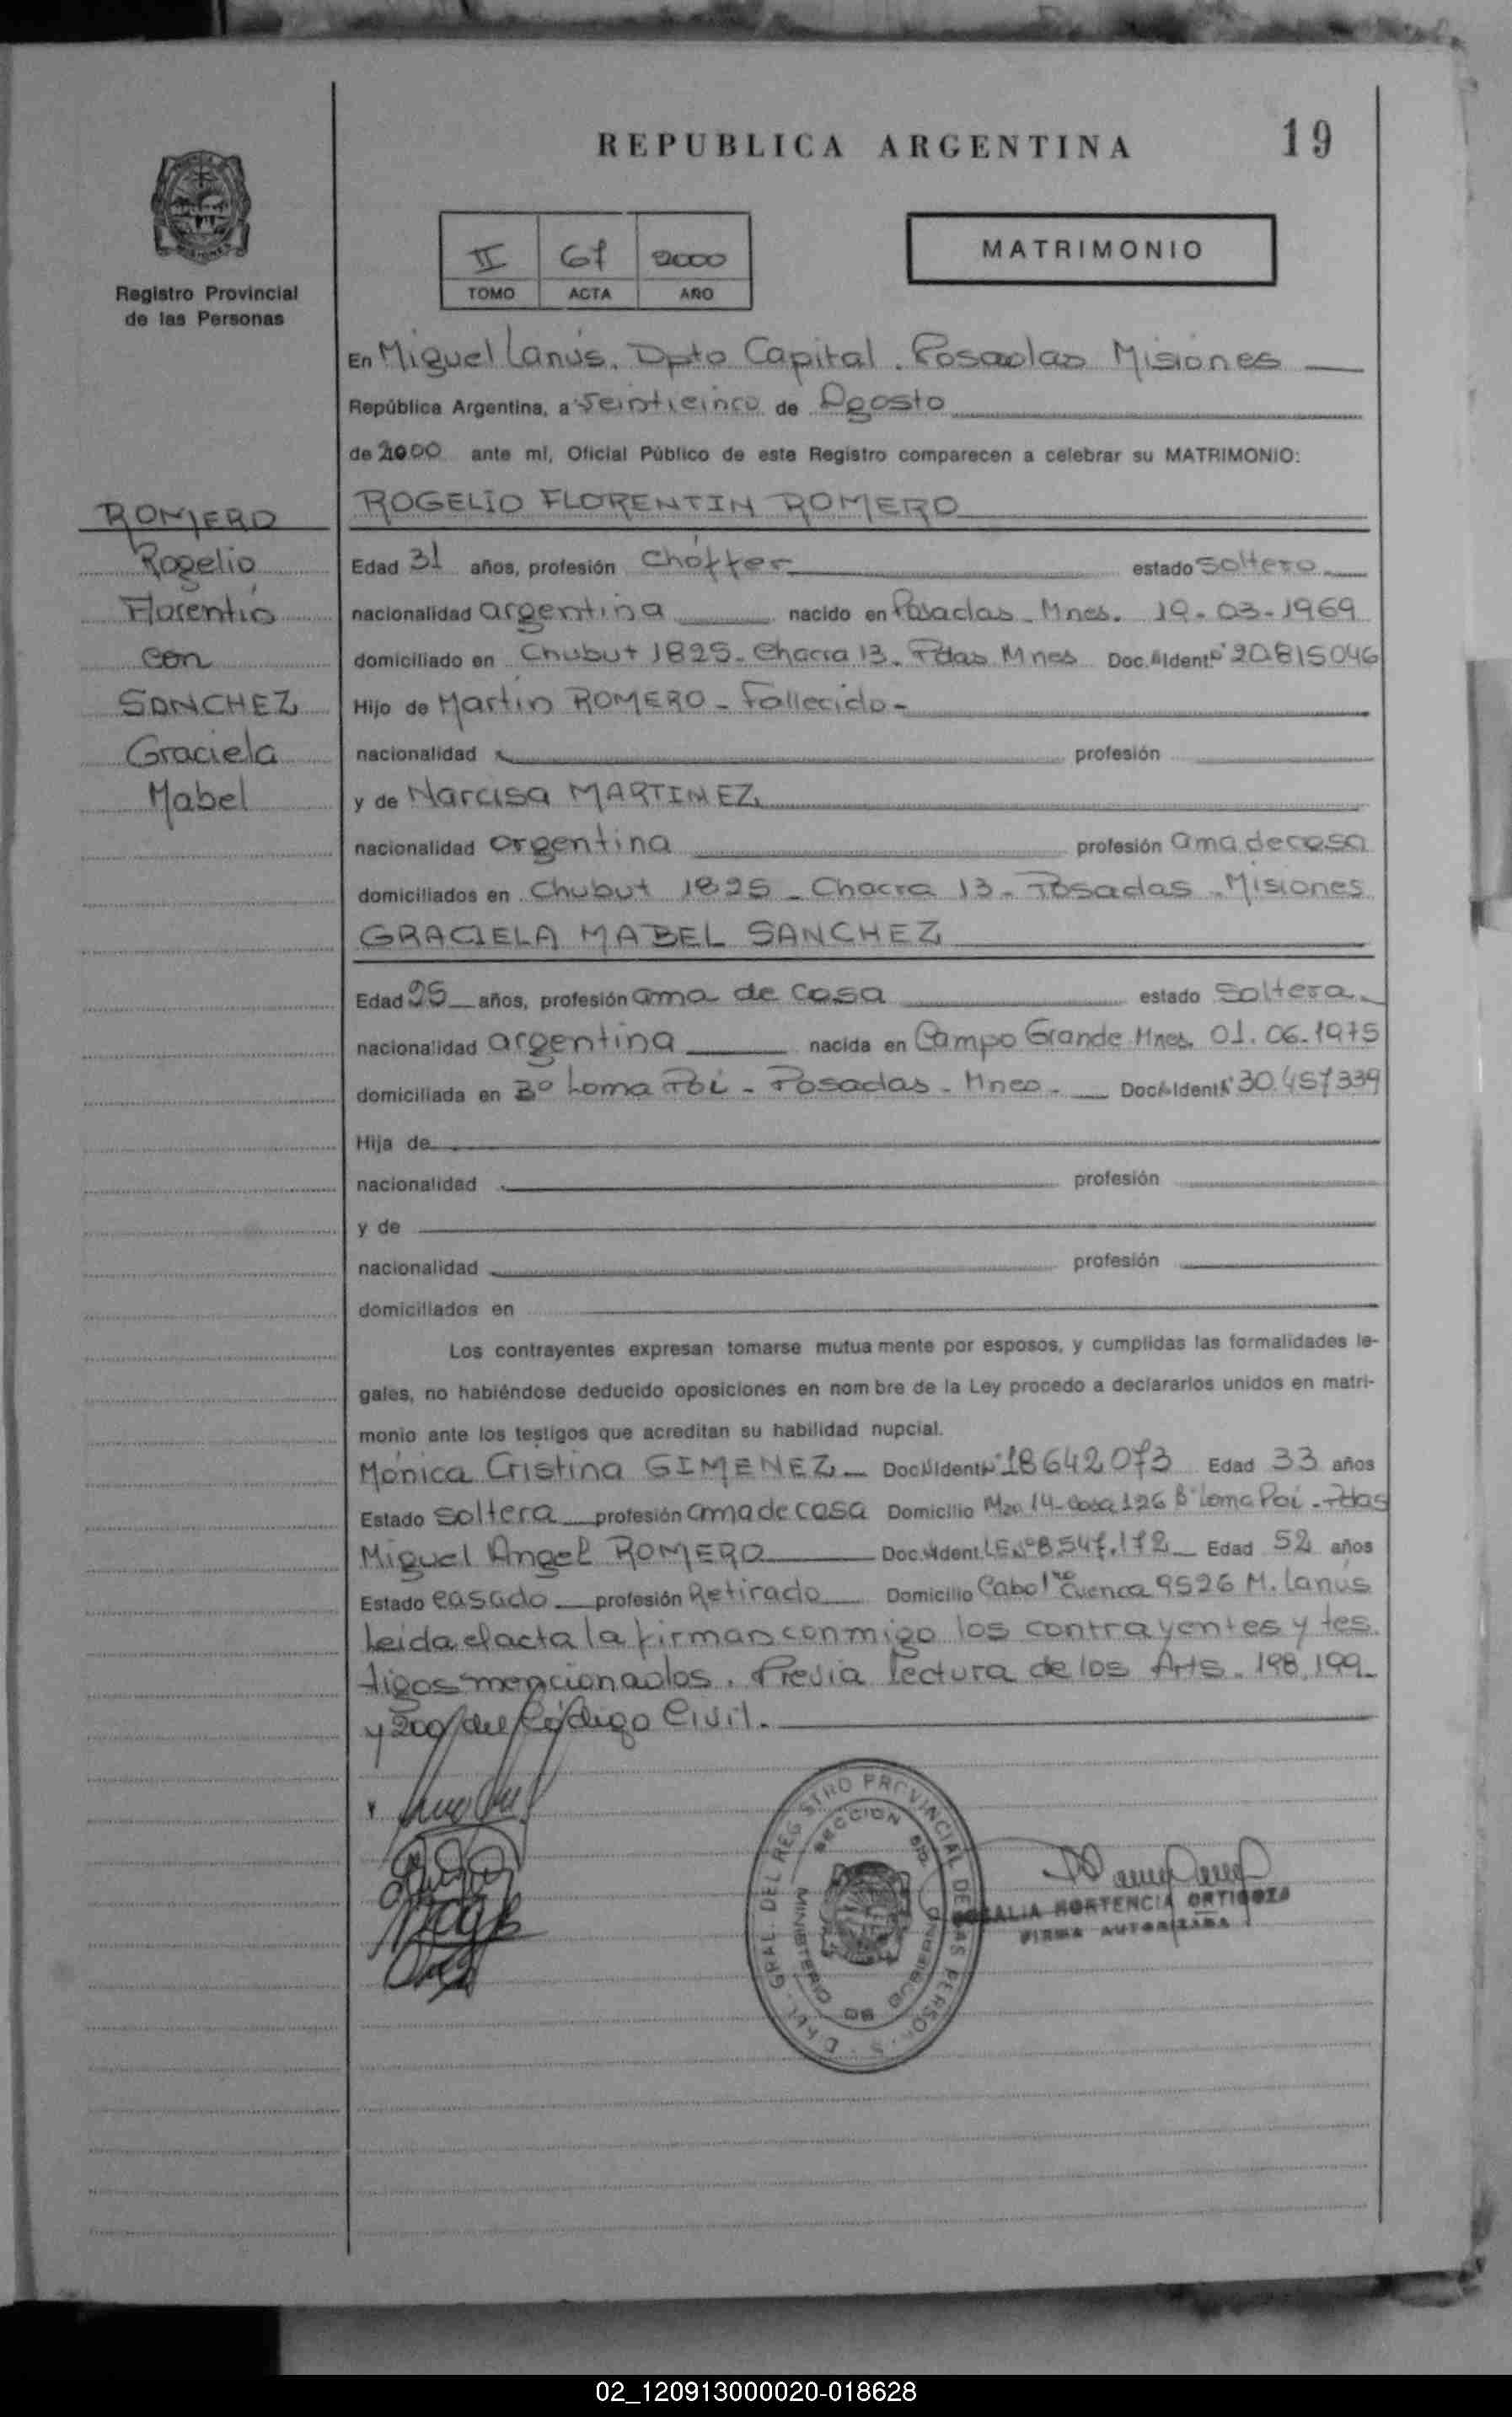 REPUBLICA ARGENTINA
19
Registro Provincial
de las Personas
II 67 2000
TOMO ACTA AÑO
MATRIMONIO
En Miguel Lanús. Dpto Capital. Posadas Misiones
República Argentina, a Veinticinco de Agosto
de 2000 ante mí, Oficial Público de este Registro comparecen a celebrar su MATRIMONIO:
ROMERO
Rogelio
Florentin
con
SANCHEZ
Graciela
Mabel
ROGELIO FLORENTIN ROMERO
Edad 31 años, profesión Chóffer estado soltero
nacionalidad argentina nacido en Posadas - Mnes. 19-03-1969
domiciliado en Chubut 1825 - Chacra 13 - Pdas Mnes Doc. Ident. Nº 20.815046
Hijo de Martin ROMERO - Fallecido -
nacionalidad profesión
y de Narcisa MARTINEZ
nacionalidad argentina profesión ama de casa
domiciliados en Chubut 1825 - Chacra 13 - Posadas - Misiones
GRACIELA MABEL SANCHEZ
Edad 25 años, profesión ama de casa estado soltera
nacionalidad argentina nacida en Campo Grande Mnes. 01.06.1975
domiciliada en Bº Loma Poi - Posadas - Mnes - Doc. Ident. Nº 30.457339
Hija de
nacionalidad profesión
y de
nacionalidad profesión
domiciliados en
Los contrayentes expresan tomarse mutua mente por esposos, y cumplidas las formalidades le-
gales, no habiéndose deducido oposiciones en nom bre de la Ley procedo a declararlos unidos en matri-
monio ante los testigos que acreditan su habilidad nupcial.
Mónica Cristina GIMENEZ Doc. Ident. Nº 18642073 Edad 33 años
Estado soltera profesión ama de casa Domicilio Mza 14 - Casa 126 Bº Loma Poi - Pdas
Miguel Angel ROMERO Doc. Ident. LE Nº 8.547.172 Edad 52 años
Estado casado profesión Retirado Domicilio Cabo 1ro Cuenca 9526 M. Lanus
Leida el acta la firman conmigo los contrayentes y tes
tigos mencionados. Previa lectura de los Arts. 198, 199
y 200 del Código Civil.
GRAL. DEL REGISTRO PROVINCIAL DE LAS PERSONAS
SECCION
MINISTERIO DE GOBIERNO
ROSALIA HORTENCIA ORTIGOZA
FIRMA AUTORIZADA
02_120913000020-018628